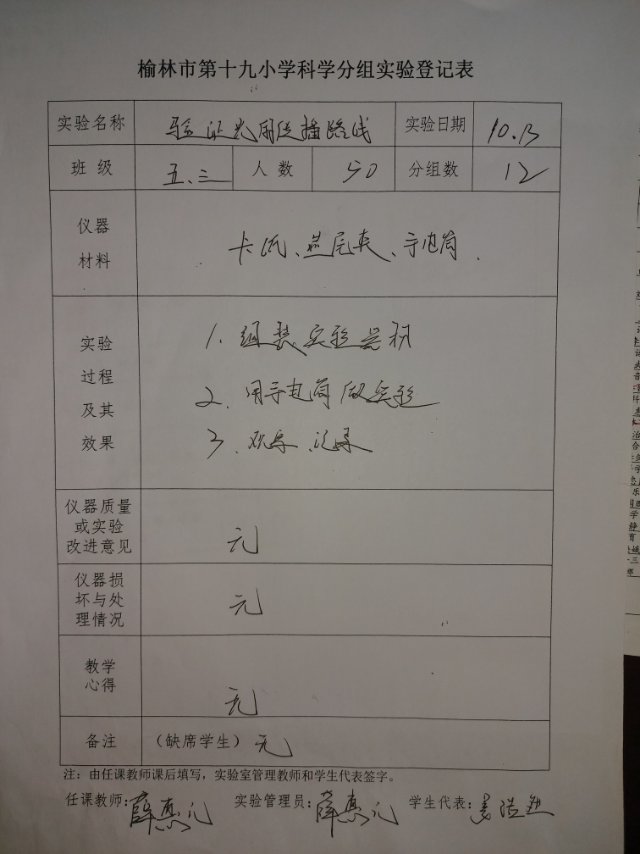 榆林市第十九小学科学分组实验登记表
实验名称 验证光的传播路线 实验日期 10.13
班 级 五.三 人 数 50 分组数 12
仪器
材料
卡纸、燕尾夹、手电筒.
实验
过程
及其
效果
1. 组装实验器材
2. 用手电筒做实验
3. 观察、记录
仪器质量
或实验
改进意见
无
仪器损
坏与处
理情况
无
教学
心得
无
备注 (缺席学生) 无
注: 由任课教师课后填写, 实验室管理教师和学生代表签字。
任课教师: 薛惠 实验管理员: 薛惠 学生代表: 姜浩